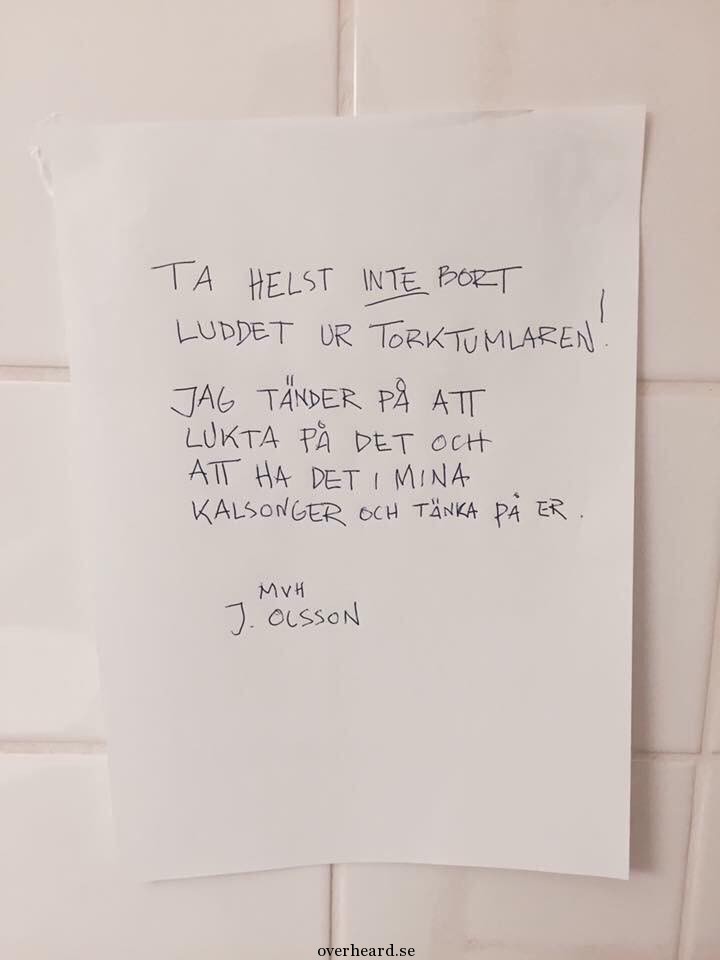 TA HELST INTE BORT
LUDDET UR TORKTUMLAREN!
JAG TÄNDER PÅ ATT
LUKTA PÅ DET OCH
ATT HA DET I MINA
KALSONGER OCH TÄNKA PÅ ER.
MVH
J. OLSSON
overheard.se